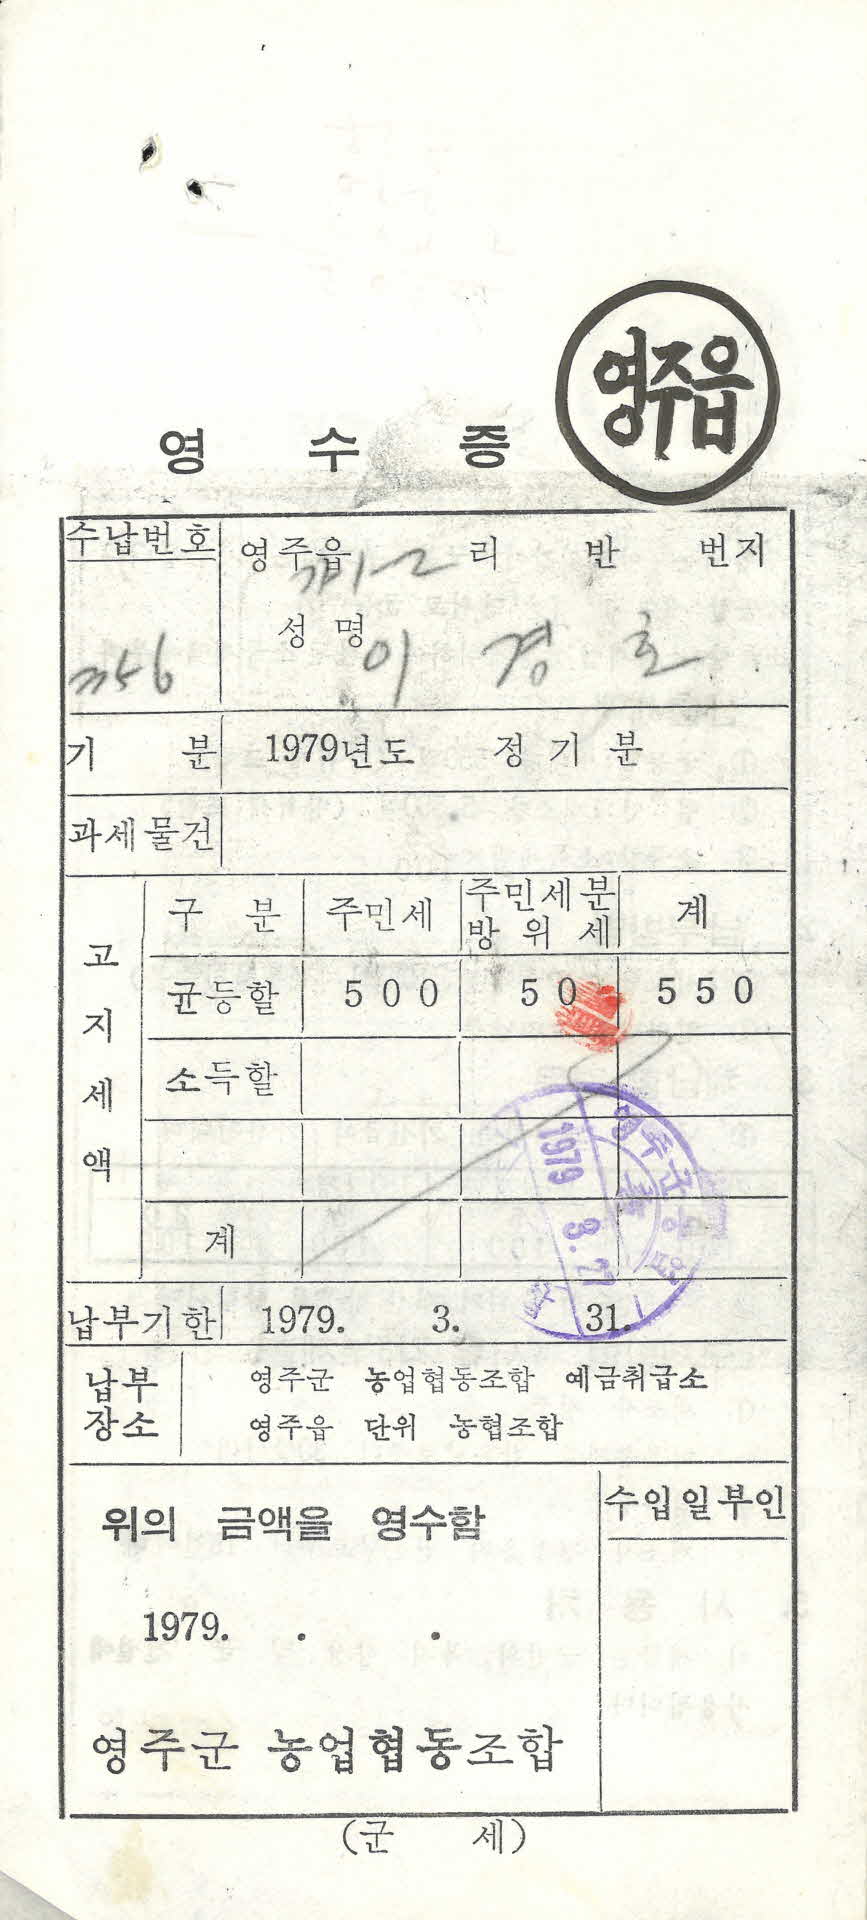 영주읍
영 수 증
수납번호
영주읍 리 반 번지
356
성명 이 경 호
기 분 1979년도 정기분
과세물건
고지세액
구 분 주민세 주민세분 방위세 계
균등할 500 50 550
소득할
계
납부기한 1979. 3. 31.
납부장소 영주군 농업협동조합 예금취급소
영주읍 단위 농협조합
위의 금액을 영수함
수입일부인
1979. . .
영주군 농업협동조합
(군 세)
영주군농협
1979 3. 27